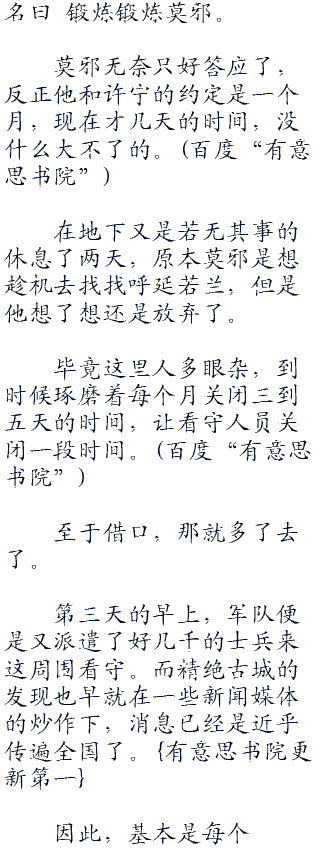 名曰 锻炼锻炼莫邪。
莫邪无奈只好答应了，
反正他和许宇的约定是一个
月，现在才几天的时间，没
什么大不了的。(百度“有意
思书院”)
在地下又是若无其事的
休息了两天，原本莫邪是想
趁机去找找呼延若兰，但是
他想了想还是放弃了。
毕竟这里人多眼杂，到
时候琢磨着每个月关闭三到
五天的时间，让看守人员关
闭一段时间。(百度“有意思
书院”)
至于借口，那就多了去
了。
第三天的早上，军队便
是又派遣了好几千的士兵来
这周围看守。而精绝古城的
发现也早就在一些新闻媒体
的炒作下，消息已经是近乎
传遍全国了。{有意思书院更
新第一}
因此，基本是每个